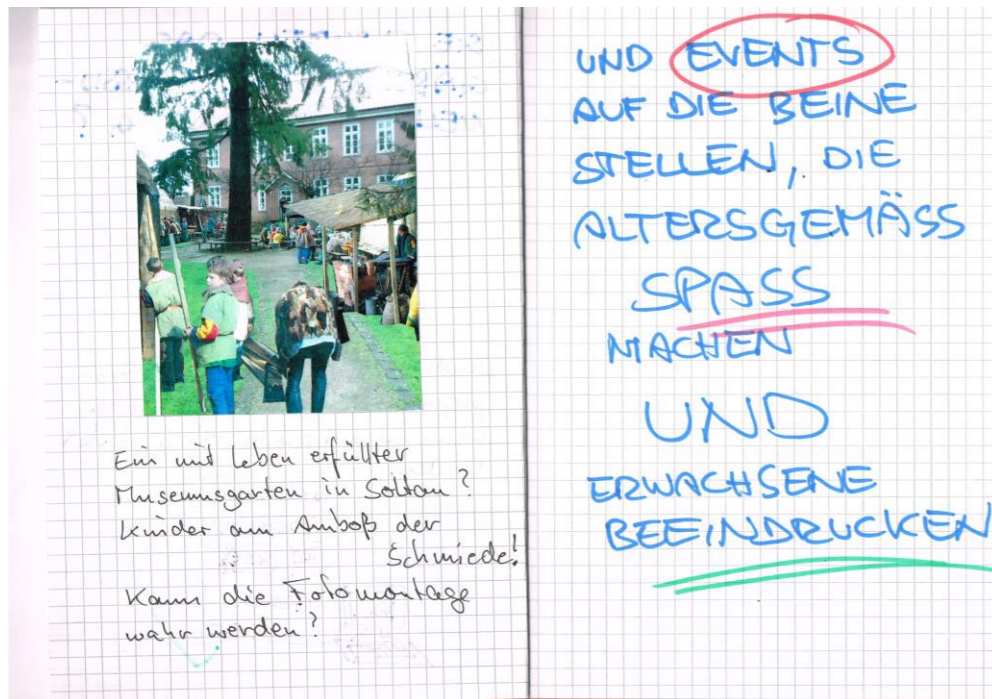 Ein mit Leben erfüllter
Museumsgarten in Soltau?
Kinder am Amboß der
Schmiede!
Kann die Fotomontage
wahr werden?
UND EVENTS
AUF DIE BEINE
STELLEN, DIE
ALTERSGEMÄSS
SPASS
MACHEN
UND
ERWACHSENE
BEEINDRUCKEN